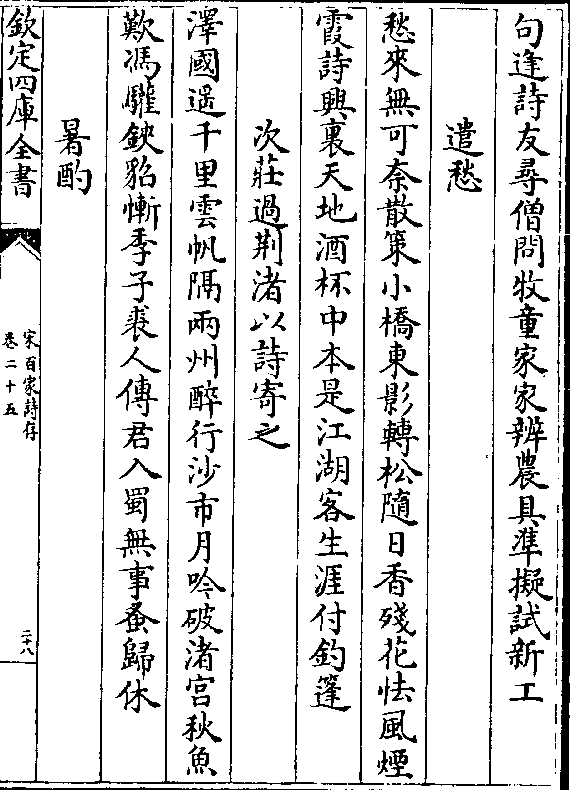 句逢詩友尋僧問牧童家家辨農具準擬試新工
遣愁
愁來無可奈散策小橋東影轉松隨日香殘花怯風煙
霞詩興裏天地酒杯中本是江湖客生涯付釣篷
次莊過荆渚以詩寄之
澤國遥千里雲帆隔兩州醉行沙市月吟破渚宫秋魚
歎馮驩鋏貂慚季子裘人傳君入蜀無事蚤歸休
暑酌
欽定四庫全書
宋百家詩存
卷二十五
二十八